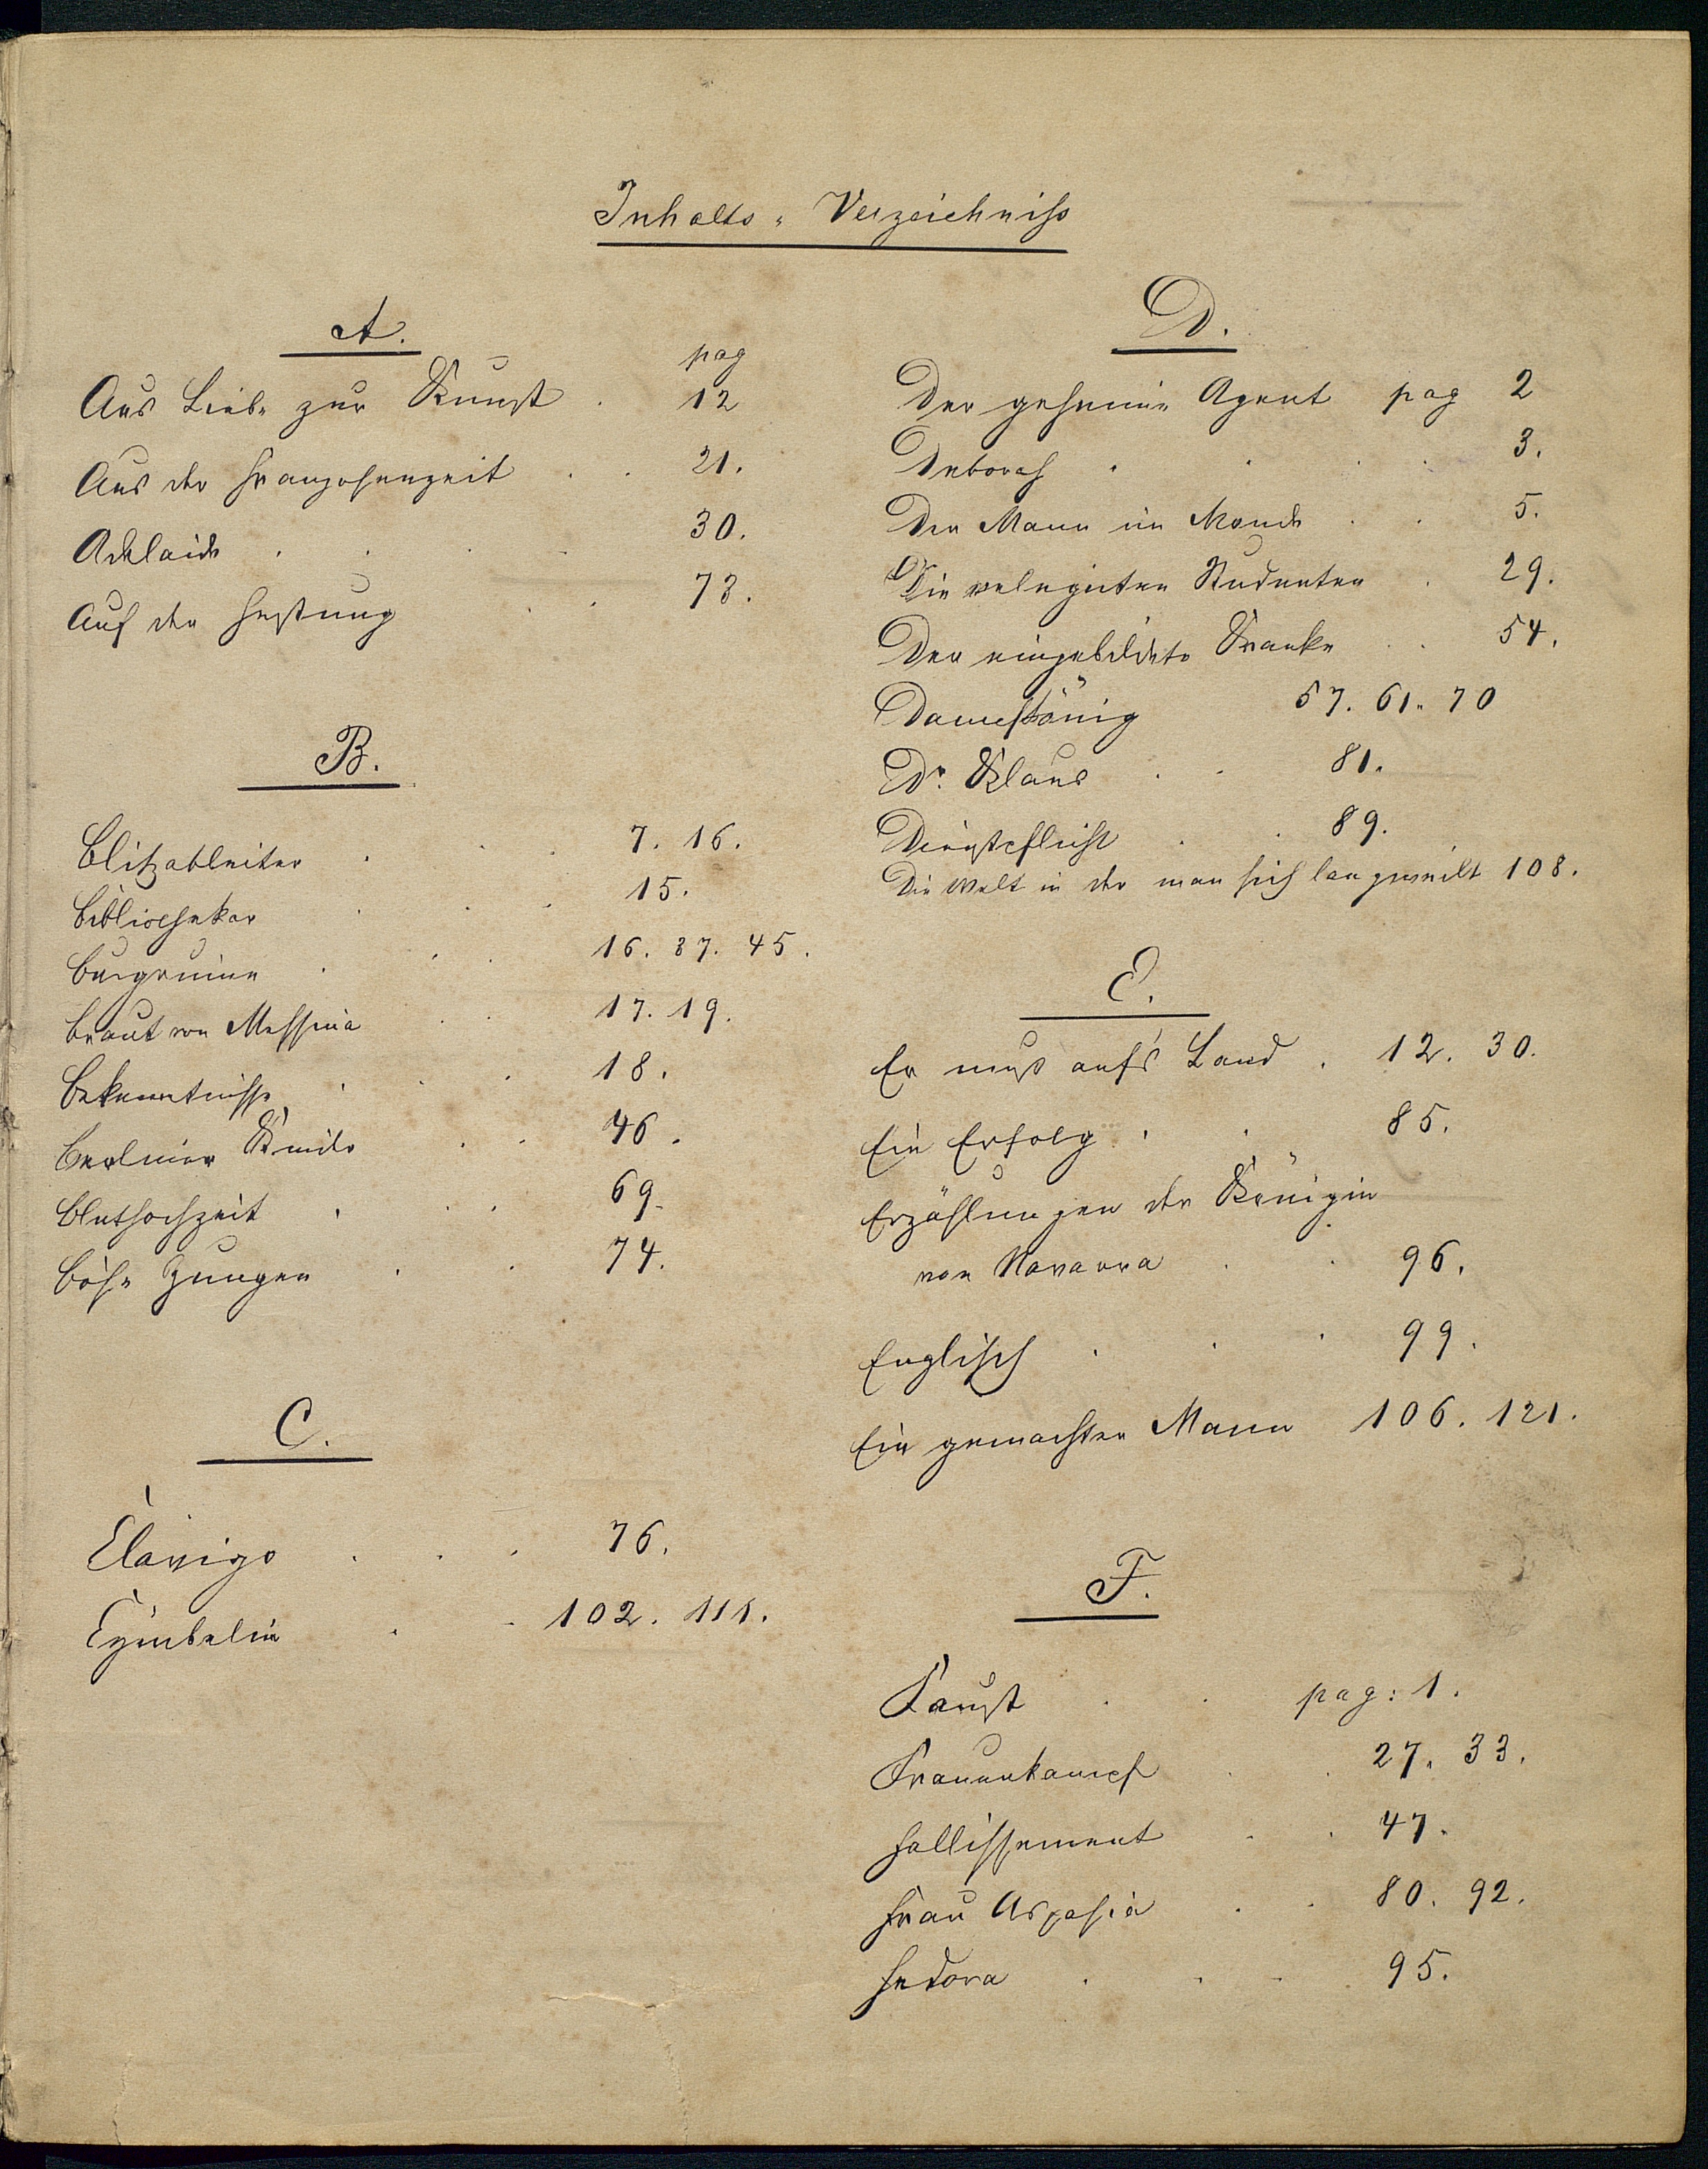 Inhalts-Verzeichniss
A.
pag
Aus Liebe zur Kunst . 12
Aus der Franzosenzeit . . 21.
Adelaide . . . . 30.
Auf der Festung . . 73.
B.
Blitzableiter . . . 7. 16.
Bibliothekar . . . 15.
Burgruine . . . 16. 37. 45.
Braut von Messina . . 17. 19.
Bekenntnisse . . . 18.
Berliner Kinder . . 46.
Bluthochzeit . . . 69.
Böse Zungen . . 74.
C.
Clavigo . . . 76.
Cymbelin . . 102. 111.
D.
Der geheime Agent pag 2
Deborah . . . . 3.
Der Mann im Monde . . 5.
Die relegirten Studenten . 29.
Der eingebildete Kranke . . 54.
Dampfkönig 57. 61. 70
Dr. Klaus . . 81.
Dienstpflicht . . 89.
Die Welt in der man sich langweilt 108.
E.
Er muß auf's Land . 12. 30.
Ein Erfolg . . 85.
Erzählungen der Königin
von Navarra . . 96.
Englisch . . . 99.
Ein gemachter Mann 106. 121.
F.
Faust . . pag: 1.
Frauenkampf . . 27. 33.
Fallissement . . 47.
Frau Aspasia . . 80. 92.
Fedora . . . . 95.